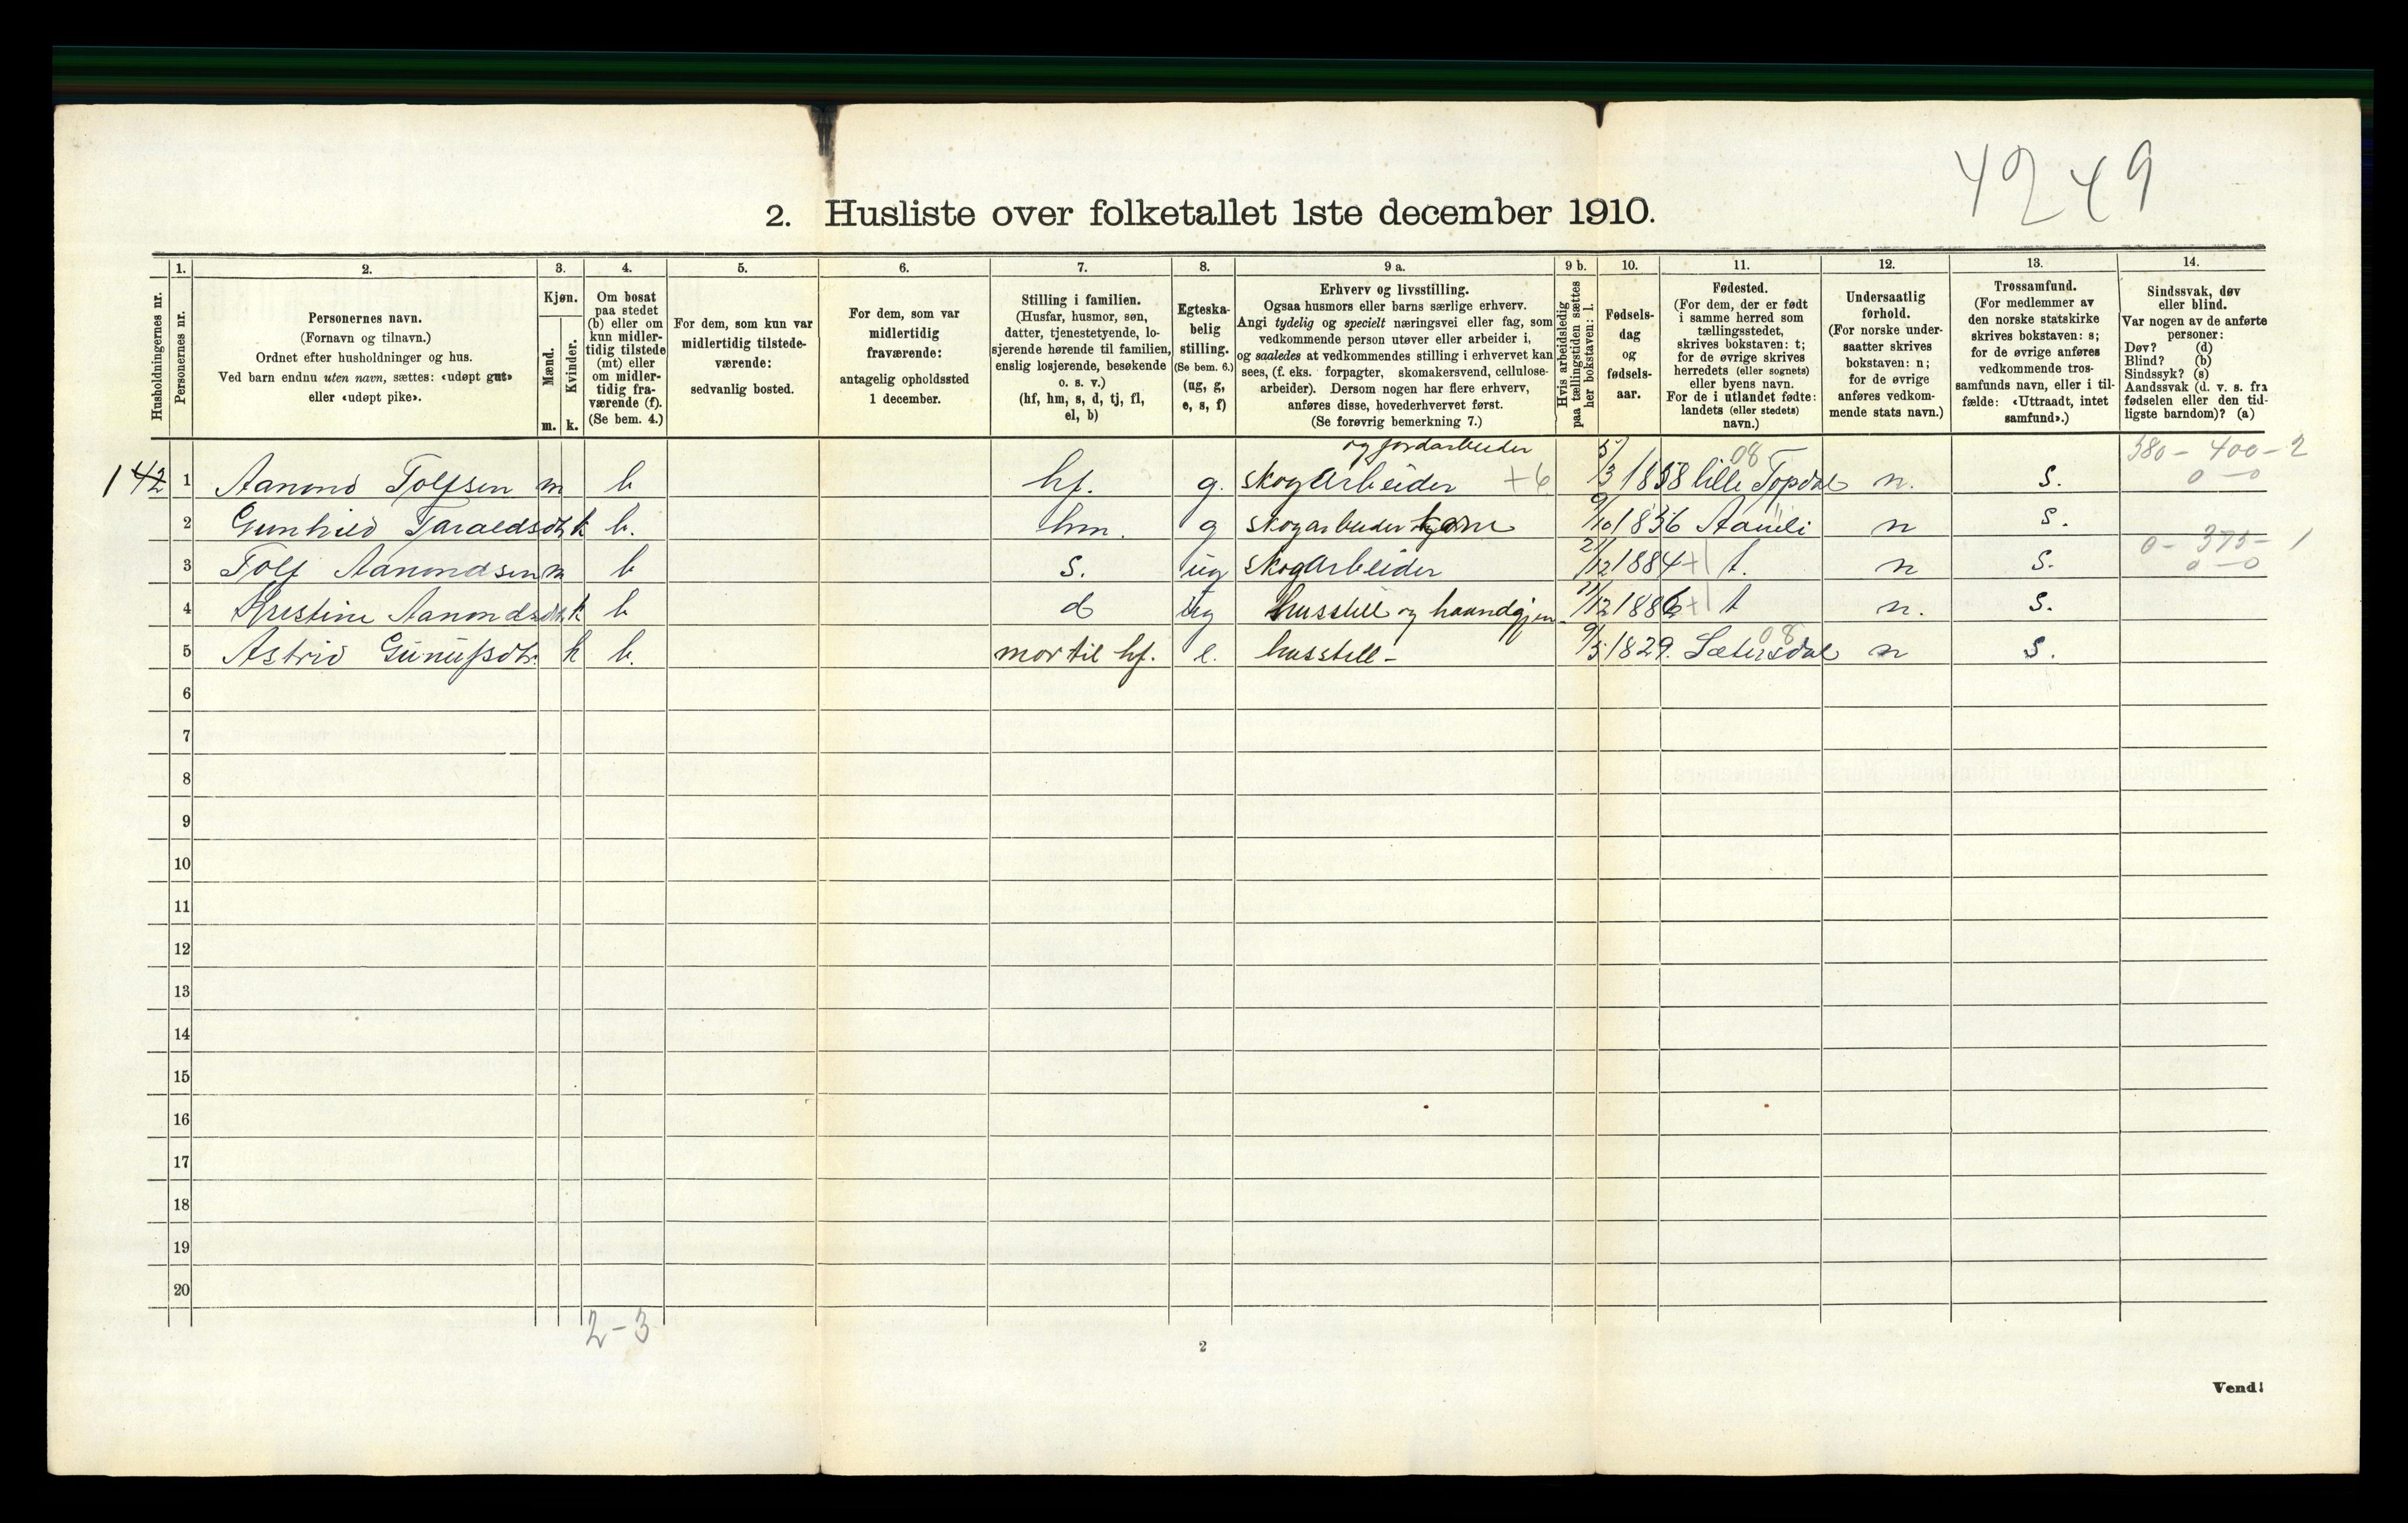 4249
2. Husliste over folketallet 1ste december 1910.
Husholdningernes nr.
1. Personernes nr.
2. Personernes navn.
(Fornavn og tilnavn.)
Ordnet efter husholdninger og hus.
Ved barn endnu uten navn, sættes: «udøpt gut»
eller «udøpt pike».
3. Kjøn.
Mænd. m.
Kvinder. k.
4. Om bosat
paa stedet
(b) eller om
kun midler-
tidig tilstede
(mt) eller
om midler-
tidig fra-
værende (f).
(Se bem. 4.)
5. For dem, som kun var
midlertidig tilstede-
værende:
sedvanlig bosted.
6. For dem, som var
midlertidig
fraværende:
antagelig opholdssted
1 december.
7. Stilling i familien.
(Husfar, husmor, søn,
datter, tjenestetyende, lo-
sjerende hørende til familien,
enslig losjerende, besøkende
o. s. v.)
(hf, hm, s, d, tj, fl,
el, b)
8. Egteska-
belig
stilling.
(Se bem. 6.)
(ug, g,
e, s, f)
9 a. Erhverv og livsstilling.
Ogsaa husmors eller barns særlige erhverv.
Angi tydelig og specielt næringsvei eller fag, som
vedkommende person utøver eller arbeider i,
og saaledes at vedkommendes stilling i erhvervet kan
sees, (f. eks. forpagter, skomakersvend, cellulose-
arbeider). Dersom nogen har flere erhverv,
anføres disse, hovederhvervet først.
(Se forøvrig bemerkning 7.)
9 b. Hvis arbeidsledig
paa tællingstiden sættes
her bokstaven: l.
10. Fødsels-
dag
og
fødsels-
aar.
11. Fødested.
(For dem, der er født
i samme herred som
tællingsstedet,
skrives bokstaven: t;
for de øvrige skrives
herredets (eller sognets)
eller byens navn.
For de i utlandet fødte:
landets (eller stedets)
navn.)
12. Undersaatlig
forhold.
(For norske under-
saatter skrives
bokstaven: n;
for de øvrige
anføres vedkom-
mende stats navn.)
13. Trossamfund.
(For medlemmer av
den norske statskirke
skrives bokstaven: s;
for de øvrige anføres
vedkommende tros-
samfunds navn, eller i til-
fælde: «Uttraadt, intet
samfund».)
14. Sindssvak, døv
eller blind.
Var nogen av de anførte
personer:
Døv? (d)
Blind? (b)
Sindssyk? (s)
Aandssvak (d. v. s. fra
fødselen eller den tid-
ligste barndom)? (a)
og jordarbeider 08 380 - 400 - 2
1 42 1 Aanond Tolfsen m b hf. g. skogarbeider +6 5/3 1858 lille Topdal n. s. 0 - 0
2 Gunhild Taraldsdtr k b. hm. g skogarbeider kone 9/10 1856 Aamli n s.
0 - 375 - 1
3 Tolf Aanondsen m b s. ug skogarbeider 21/12 1884 +1 t. n s. 0 - 0
4 Kristine Aanondsdtr k b d ug husstell og haandgjern 21/12 1886 +1 t n. s.
08
5 Astrid Gunufsdtr. k b. mor til hf. e. husstell - 9/5 1829. Sætersdal n s.
6
7
8
9
10
11
12
13
14
15
16
17
18
19
20
2-3
2
Vend!